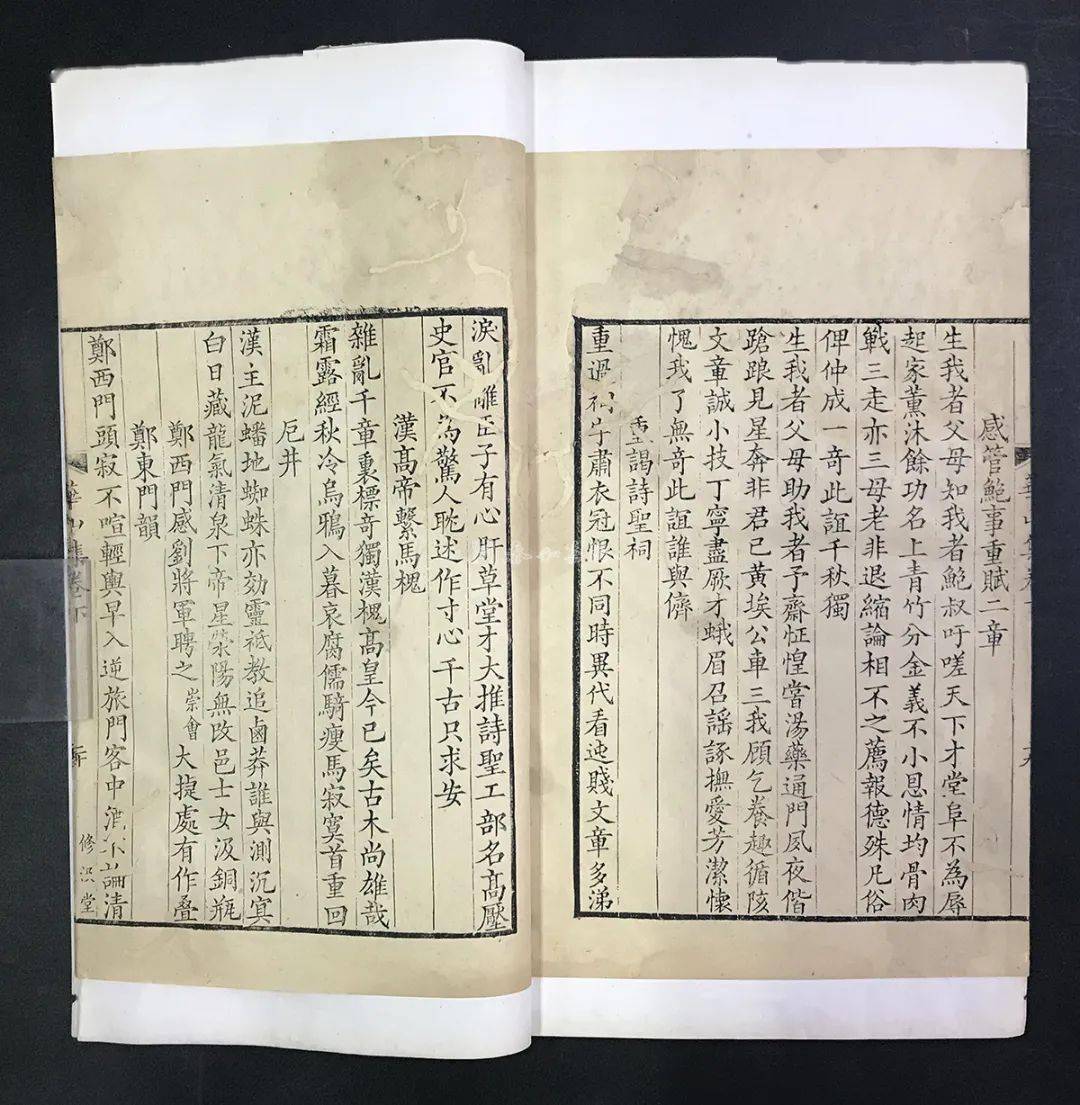 感管鮑事重賦二章
生我者父母知我者鮑叔吁嗟天下才堂阜不為辱
起家薰沐餘功名上青竹分金義不小恩情均骨肉
戰三走亦三母老非退縮論相不之薦報德殊凡俗
俾仲成一奇此誼千秋獨
生我者父母助我者予齋怔惶嘗湯藥通門夙夜偕
蹌踉見星奔非君已黃埃公車三我顧乞養趣循陔
文章誠小技丁寧盡厥才蛾眉召謡諑撫愛芳潔懷
愧我了無奇此誼誰與儕
重謁詩聖祠
重過 肅衣冠恨不同時異代看迹賤文章多涕
十九
淚亂離臣子有心肝草堂才大推詩聖工部名高壓
史官不為驚人耽述作寸心千古只求安
漢高帝繫馬槐
雜亂千章裏標奇獨漢槐高皇今已矣古木尚雄哉
霜露經秋冷烏鴉入暮哀腐儒騎瘦馬寂寞首重回
厄井
漢主泥蟠地蜘蛛亦効靈祗教追鹵莽誰與測沉冥
白日藏龍氣清泉下帝星滎陽無改邑士女汲銅瓶
鄭西門感劉將軍聘之崇會大捷處有作叠
鄭東門韻
鄭西門頭寂不喧輕輿早入逆旅門客中酒 論清
華山集卷下
修 堂